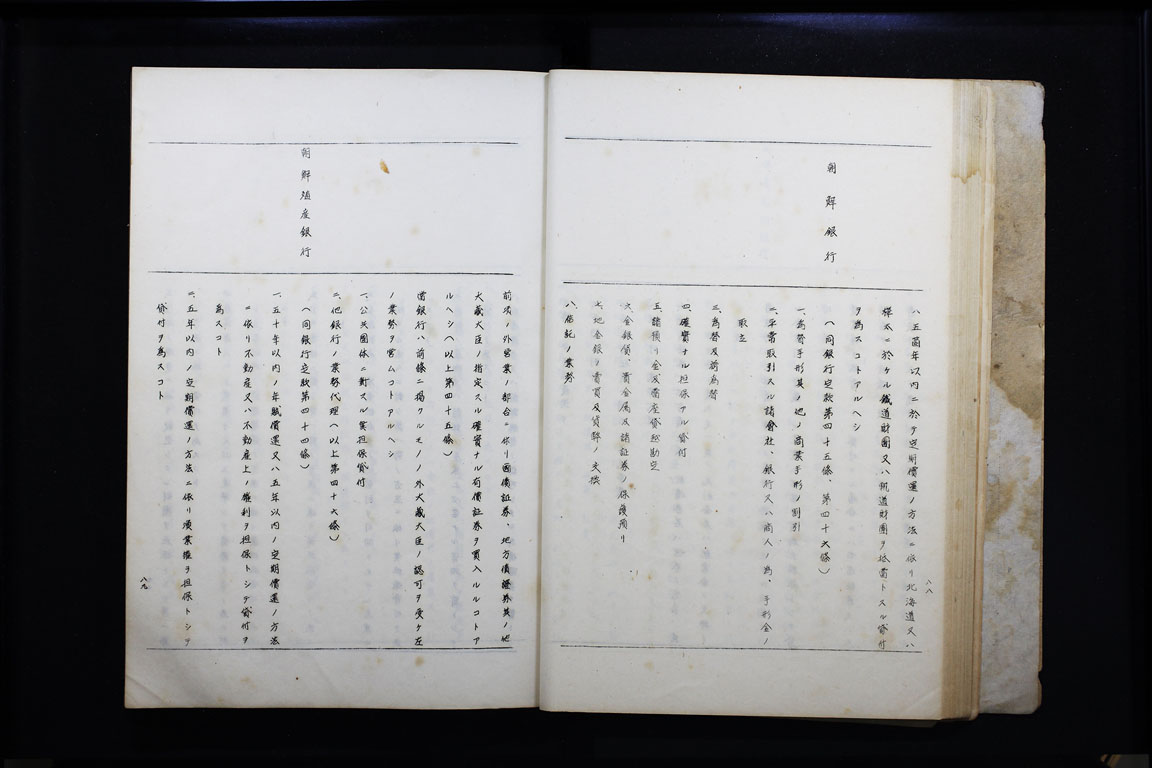 八八
朝鮮銀行
八五箇年以内ニ於テ定期償還ノ方法ニ依リ北海道又ハ
樺太ニ於ケル鐵道財團又ハ軌道財團ヲ抵當トスル貸付
ヲ為スコトアルヘシ
(同銀行定款第四十五條、第四十六條)
一、為替手形其ノ他ノ商業手形ノ割引
二、平常取引スル諸會社、銀行又ハ商人ノ為、手形金ノ
取立
三、為替及荷為替
四、確實ナル担保アル貸付
五、諸預リ金及當座貸越勘定
六、金銀貨、貴金属及諸証券ノ保護預リ
七、地金銀ノ賣買及貨幣ノ交換
八、信託ノ業務
前項ノ外営業ノ都合ニ依リ國債証券、地方債證券其ノ他
大蔵大臣ノ指定スル確實ナル有價証券ヲ買入ルルコトア
ルヘシ(以上第四十五條)
當銀行ハ前條ニ掲クルモノノ外大蔵大臣ノ認可ヲ受ケ左
ノ業務ヲ営ムコトアルヘシ
一、公共團体ニ對スル無担保貸付
二、他銀行ノ業務代理(以上第四十六條)
朝鮮殖産銀行
(同銀行定款第四十四條)
一、五十年以内ノ年賦償還又ハ五年以内ノ定期償還ノ方法
ニ依リ不動産又ハ不動産上ノ權利ヲ担保トシテ貸付ヲ
為スコト
二、五年以内ノ定期償還ノ方法ニ依リ漁業權ヲ担保トシテ
貸付ヲ為スコト
八九